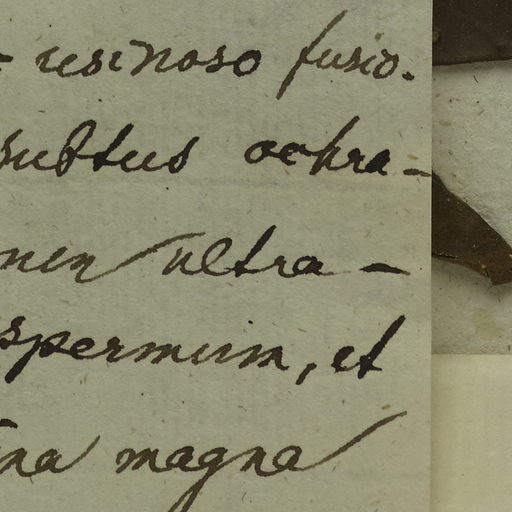 resinoso fusio.
subtus ochra-
men ultra-
spermum, et
magna